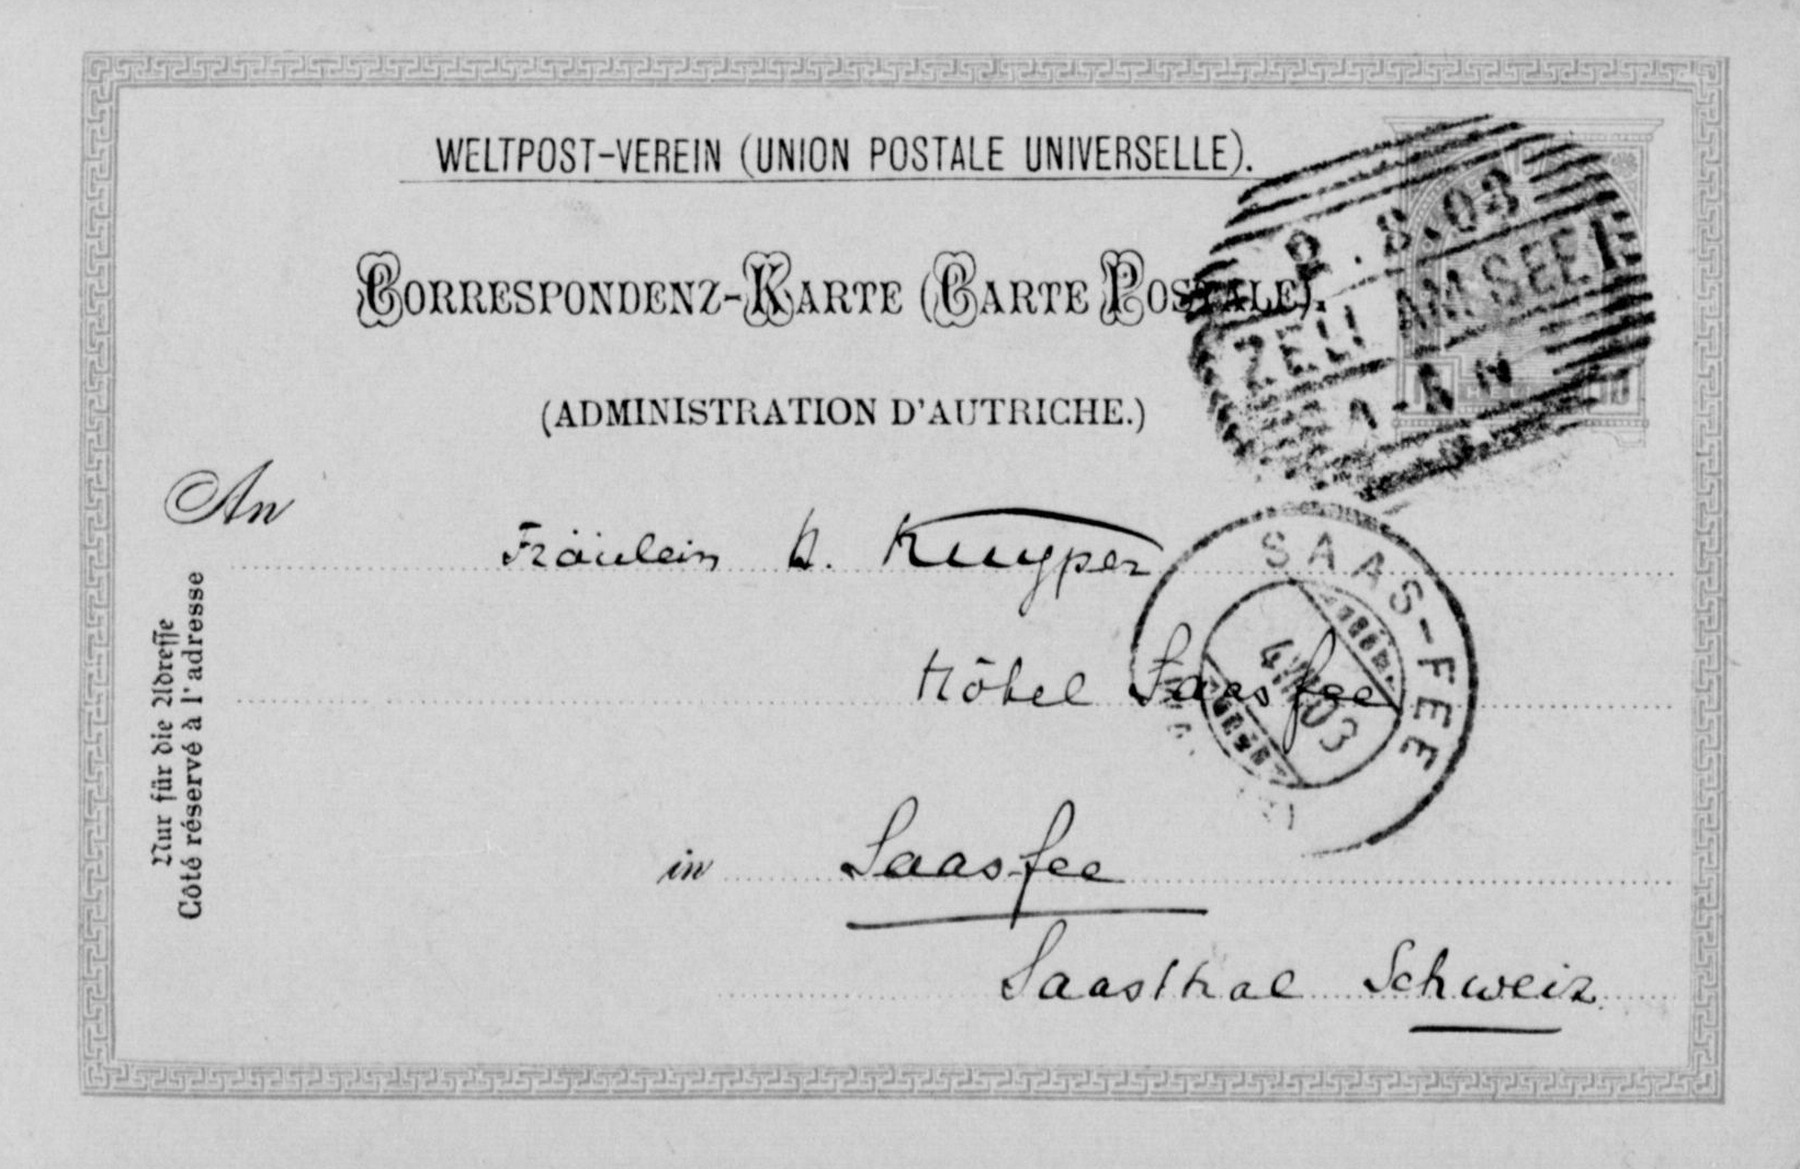 WELTPOST-VEREIN (UNION POSTALE UNIVERSELLE).
CORRESPONDENZ-KARTE (CARTE POSTALE).
(ADMINISTRATION D'AUTRICHE.)
. 8.03
ZELL AM SEE 1
An
Fräulein H. Kuyper
SAAS-FEE
03
Hôtel Saas fee
in Saasfee
Saasthal Schweiz.
Nur für die Adresse
Côté réservé à l'adresse